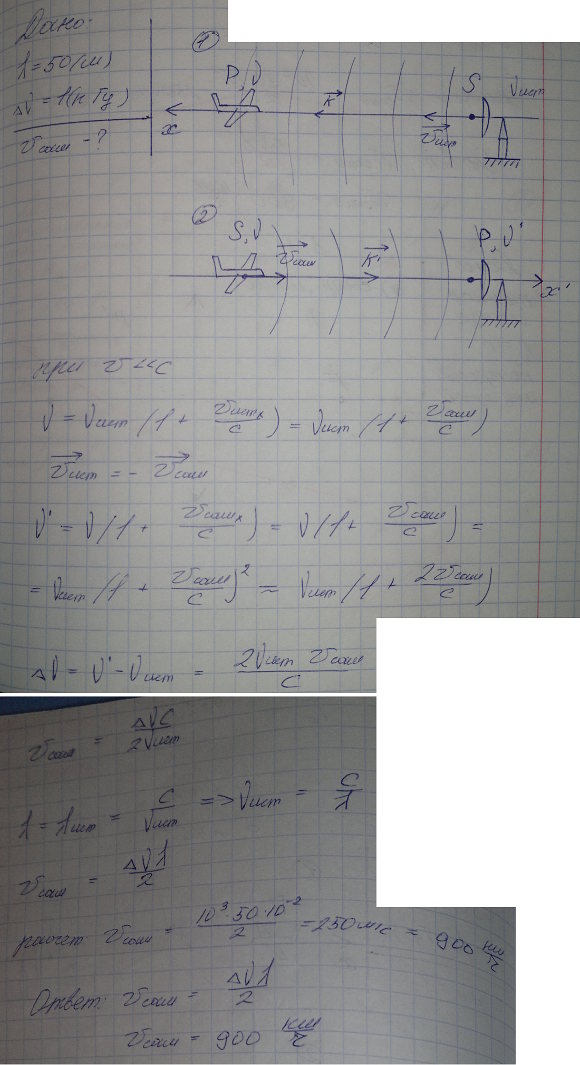 Дано:
λ = 50 (см)
Δν = 1 (кГц)
υсам - ?
①
P, ν
K
S
νист
υист
x
②
S, ν
υсам
K'
P, ν'
x'
при υ << c
ν = νист (1 + υистx/c) = νист (1 + υсам/c)
υист = - υсам
ν' = ν (1 + υсамx/c) = ν (1 + υсам/c) =
= νист (1 + υсам/c)² ≈ νист (1 + 2υсам/c)
Δν = ν' - νист = 2νист υсам/c
υсам = Δν c/2νист
λ = λист = c/νист => νист = c/λ
υсам = Δν λ/2
расчет: υсам = 10³·50·10⁻²/2 = 250 м/с = 900 км/ч
Ответ: υсам = Δν λ/2
υсам = 900 км/ч